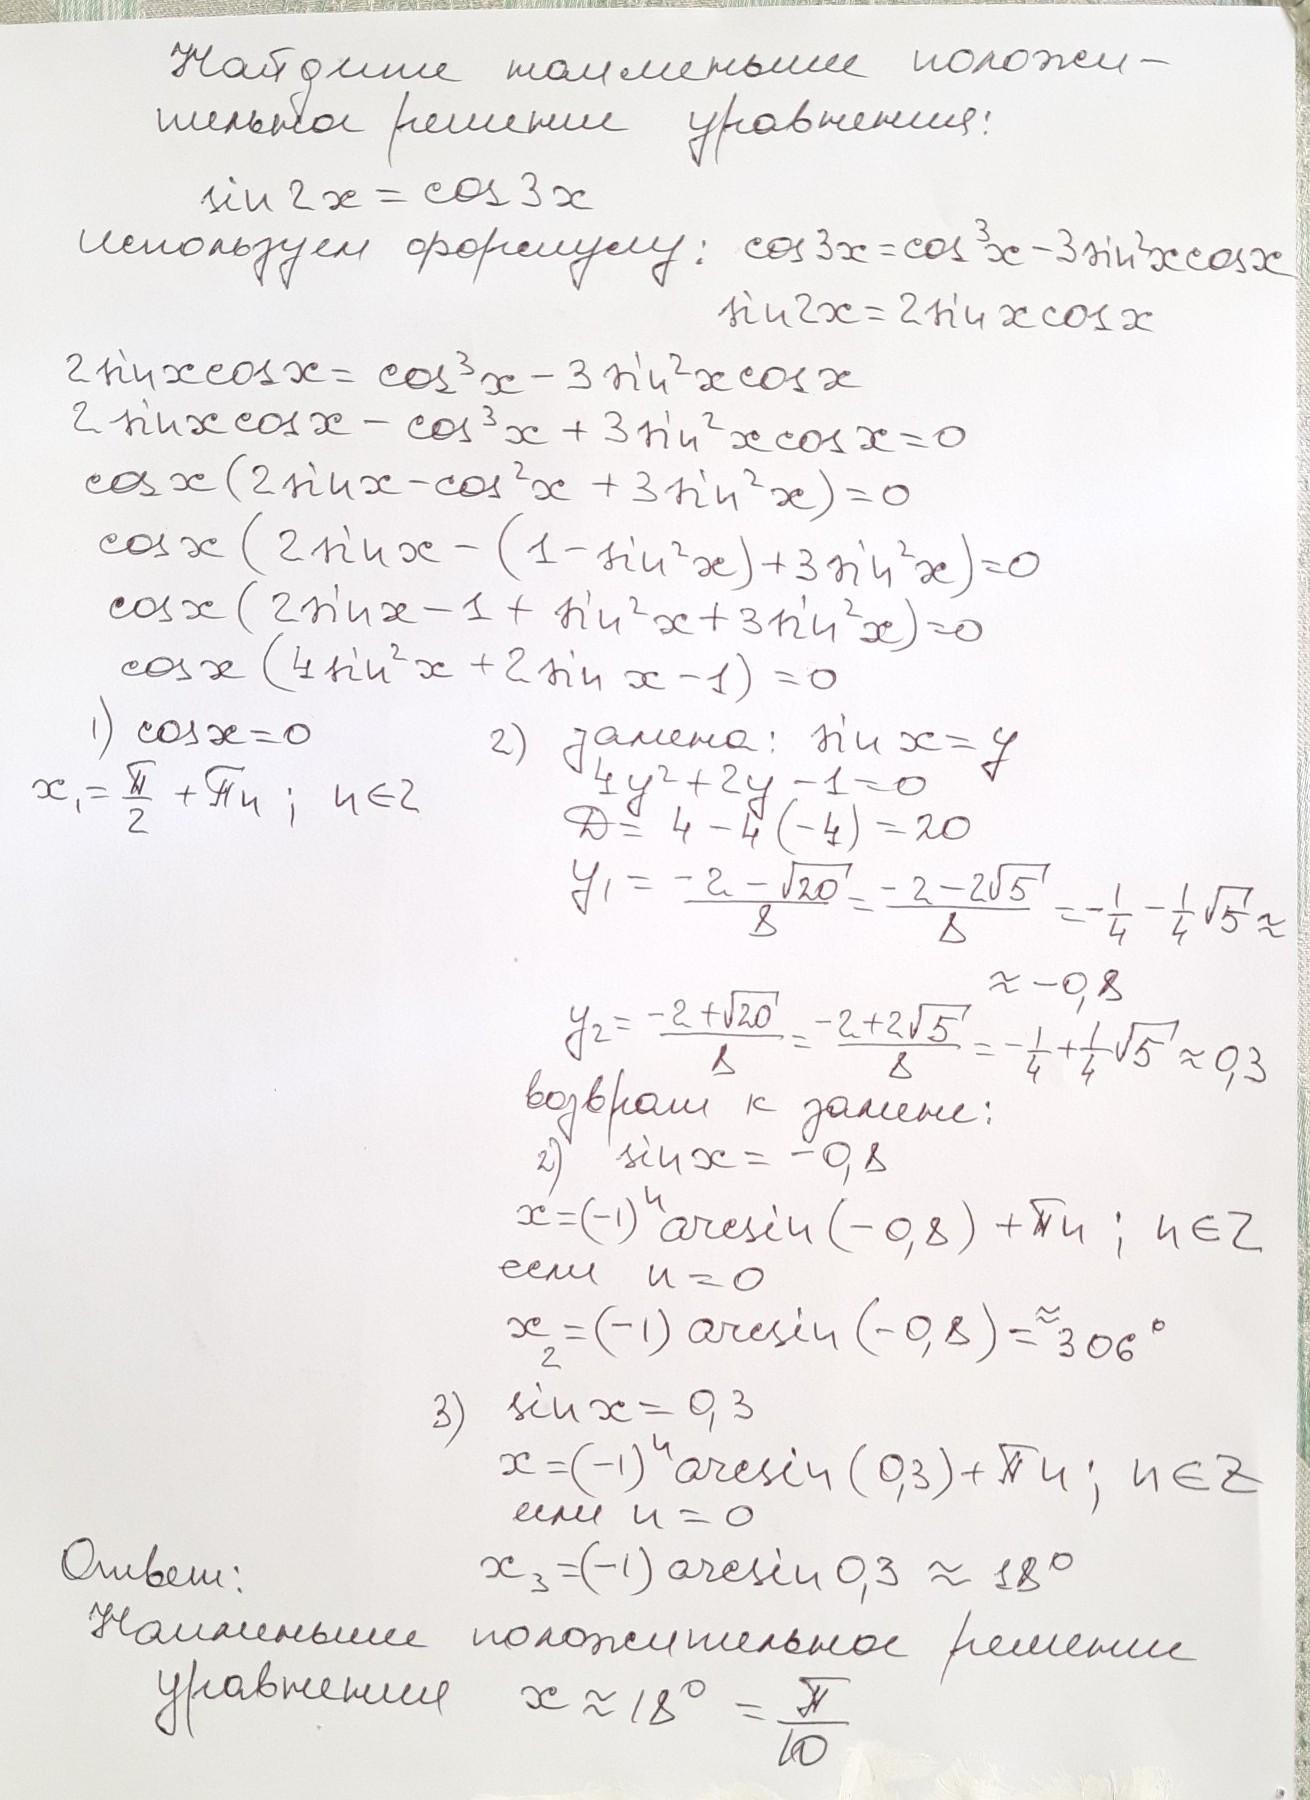 Найдите наименьшее положи-
тельное решение уравнения:
sin2x = cos3x
используем формулу: cos3x = cos³x - 3sin²xcosx
sin2x = 2sinxcosx
2sinxcosx = cos³x - 3sin²xcosx
2sinxcosx - cos³x + 3sin²xcosx = 0
cosx(2sinx - cos²x + 3sin²x) = 0
cosx(2sinx - (1 - sin²x) + 3sin²x) = 0
cosx(2sinx - 1 + sin²x + 3sin²x) = 0
cosx(4sin²x + 2sinx - 1) = 0
1) cosx = 0
x₁ = π/2 + πn ; n∈Z
2) замена: sinx = y
4y² + 2y - 1 = 0
D = 4 - 4(-4) = 20
y₁ = (-2 - √20)/8 = (-2 - 2√5)/8 = -1/4 - 1/4 √5 ≈
≈ -0,8
y₂ = (-2 + √20)/8 = (-2 + 2√5)/8 = -1/4 + 1/4 √5 ≈ 0,3
возврат к замене:
2) sinx = -0,8
x = (-1)ⁿ arcsin(-0,8) + πn ; n∈Z
если n = 0
x₂ = (-1) arcsin(-0,8) = ≈ 306°
3) sinx = 0,3
x = (-1)ⁿ arcsin(0,3) + πn ; n∈Z
если n = 0
x₃ = (-1) arcsin 0,3 ≈ 18°
Ответ:
Наименьшее положительное решение
уравнения x ≈ 18° = π/10